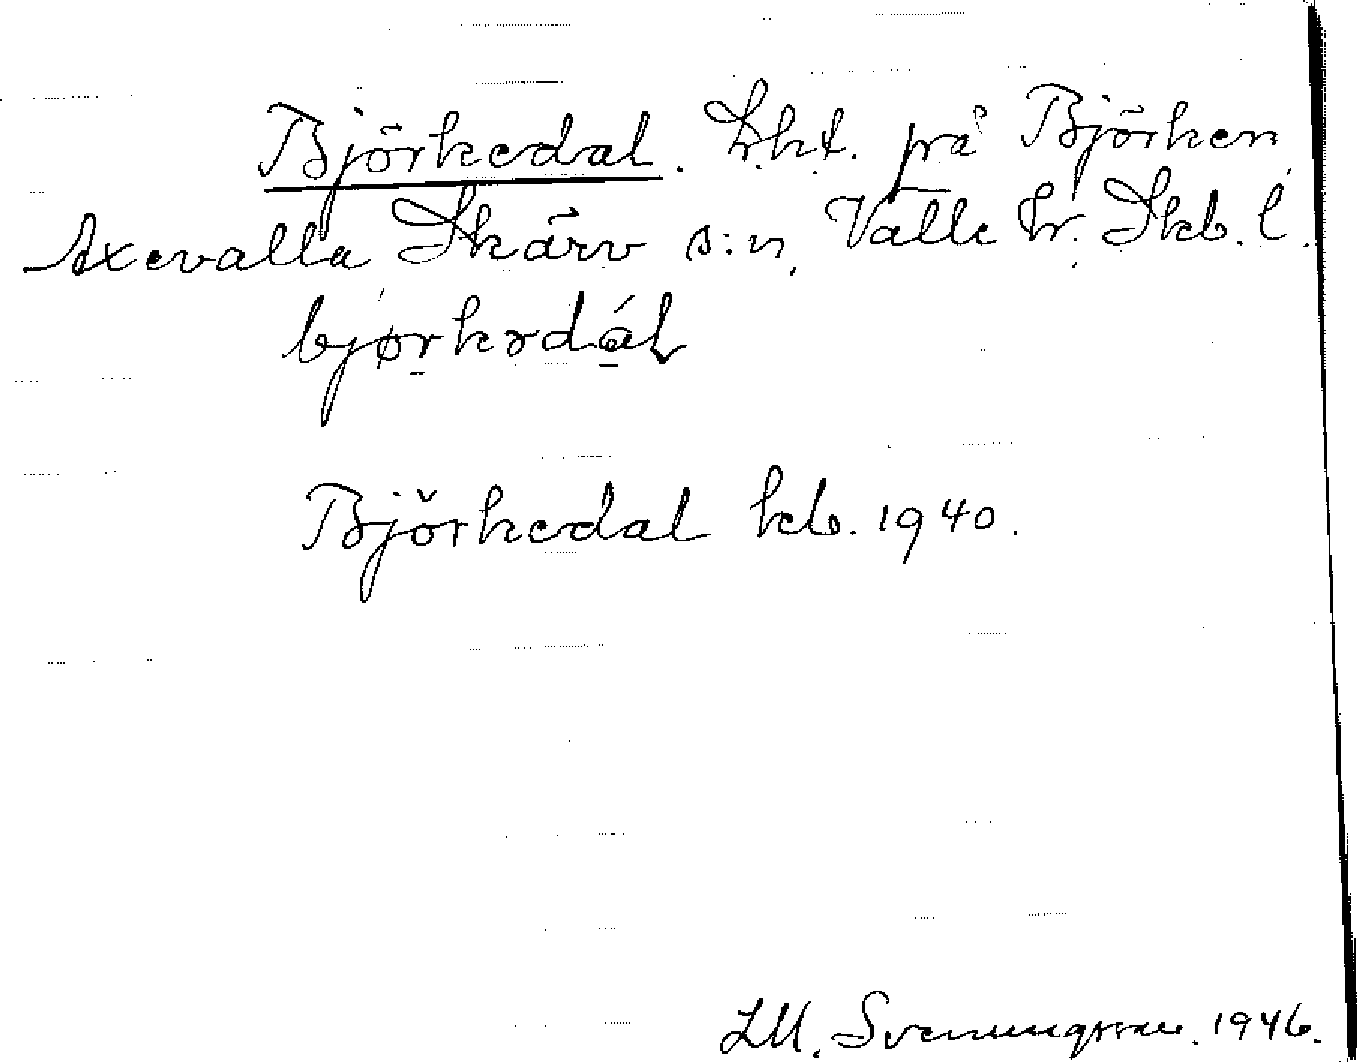 Björkedal. Lht. på Björken
Axevalla Skärv s:n, Valle hr. Skb. l.
bjørkədál
Björkedal kb. 1940.
LM. Svenungsson. 1946.